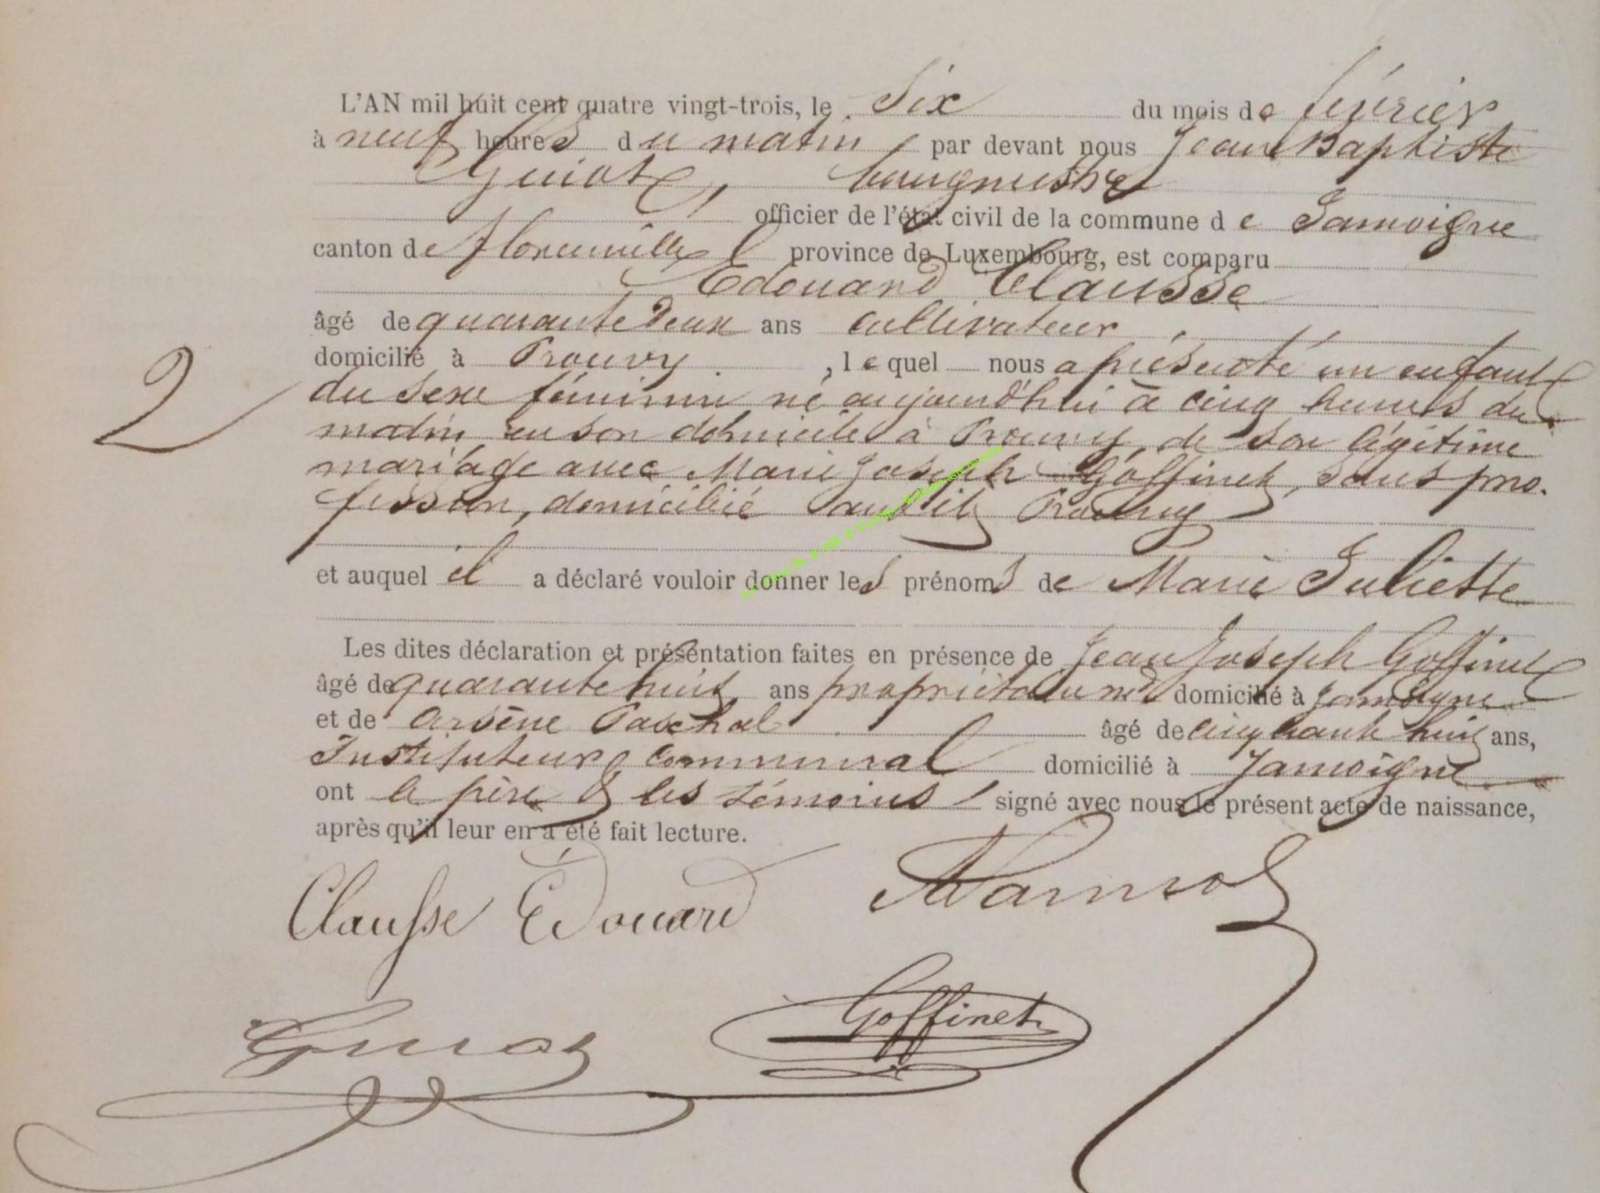 L'AN mil huit cent quatre vingt-trois, le Six du mois de février
à neuf heures du matin, par devant nous Jean Baptiste
Guiot, bourgmestre
officier de l'état civil de la commune de Jamoigne
canton de Florenville province de Luxembourg, est comparu
Edouard Clausse
âgé de quarante deux ans cultivateur
domicilié à Prouvy, lequel nous a présenté un enfant
2
du sexe féminin né aujourd'hui à cinq heures du
matin, en son domicile à Prouvy, de son légitime
mariage avec Marie Joseph Goffinet, sans pro-
fession, domicilié audit Prouvy
et auquel il a déclaré vouloir donner les prénoms de Marie Juliette
Les dites déclaration et présentation faites en présence de Jean Joseph Goffinet
âgé de quarante huit ans propriétaire domicilié à Jamoigne
et de Arsène Paschal âgé de cinquante huit ans,
Instituteur communal domicilié à Jamoigne
ont le père & les témoins signé avec nous le présent acte de naissance,
après qu'il leur en a été fait lecture.
Clausse Edouard
Guiot Goffinet